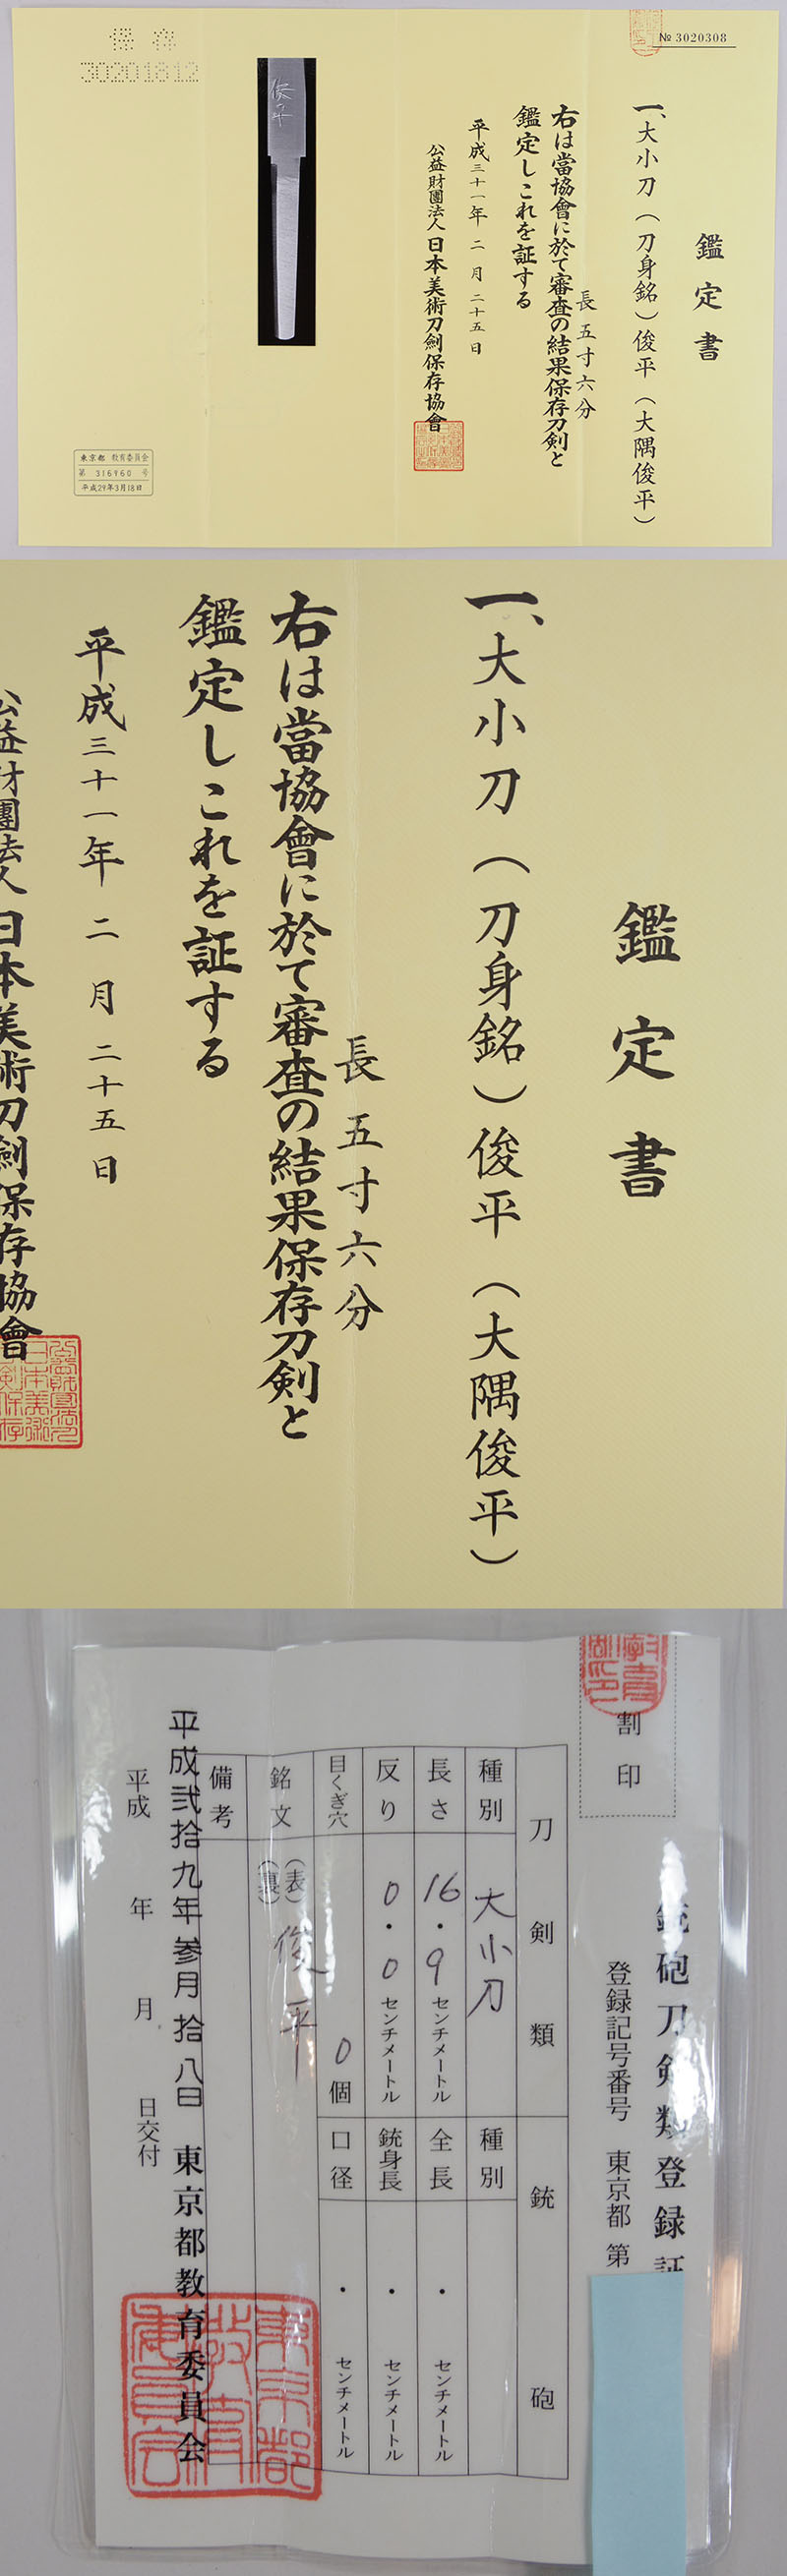 保存
№ 3020308
鑑定書
一、大小刀（刀身銘）俊平（大隅俊平）
長五寸六分
右は當協會に於て審査の結果保存刀剣と
鑑定しこれを証する
平成三十一年二月二十五日
公益財團法人日本美術刀劍保存協會
俊平
東京都 教育委員会
第 316960 号
平成29年3月18日
鑑定書
一、大小刀（刀身銘）俊平（大隅俊平）
長五寸六分
右は當協會に於て審査の結果保存刀剣と
鑑定しこれを証する
平成三十一年二月二十五日
公益財團法人日本美術刀劍保存協會
割印
銃砲刀剣類登録証
登録記号番号 東京都 第
刀剣類 銃砲
種別 大小刀 種別
長さ 16.9センチメートル 全長 ・ センチメートル
反り 0.0センチメートル 銃身長 ・ センチメートル
目くぎ穴 0個 口径 ・ センチメートル
銘文 (表) 俊平
(裏)
備考
平成弐拾九年参月拾八日 東京都教育委員会
平成 年 月 日交付